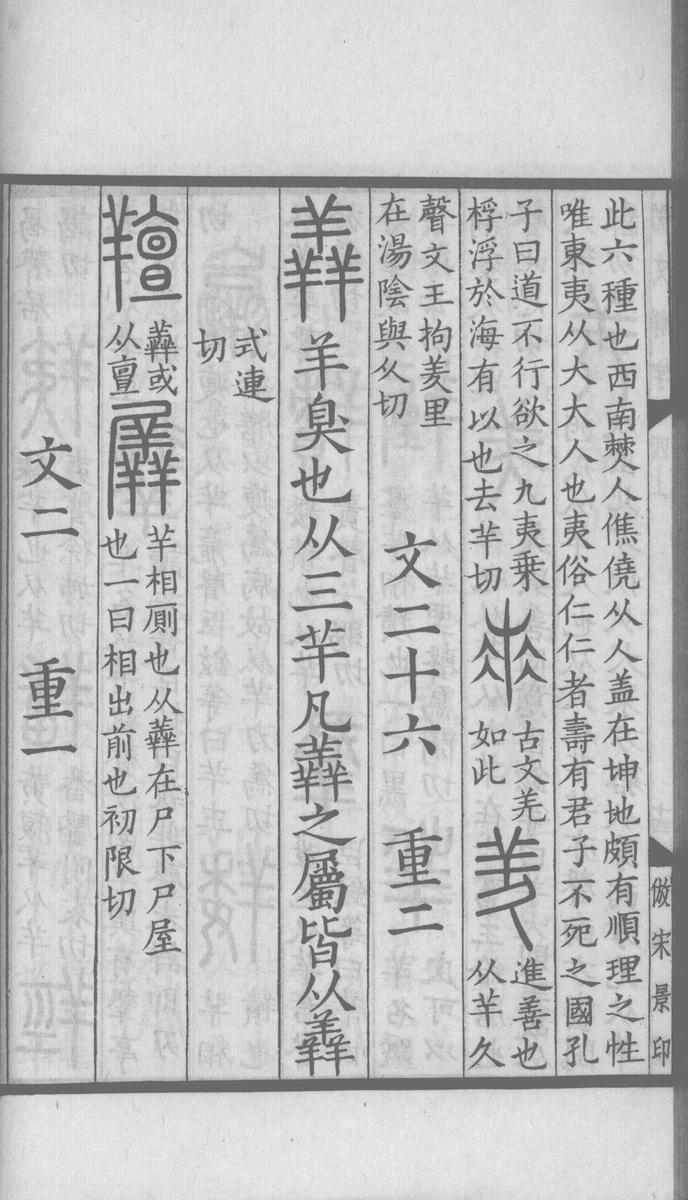 此六種也西南僰人僬僥从人蓋在坤地頗有順理之性
唯東夷从大大人也夷俗仁仁者壽有君子不死之國孔
子曰道不行欲之九夷乘
桴浮於海有以也去羊切
古文羌
如此
羑
進善也
从羊久
聲文王拘羑里
在湯陰與久切
文二十六 重二
羴
羊臭也从三羊凡羴之屬皆从羴
式連
切
羶
羴或
从亶
羼
羊相厠也从羴在尸下尸屋
也一曰相出前也初限切
文二 重一
倣宋景印